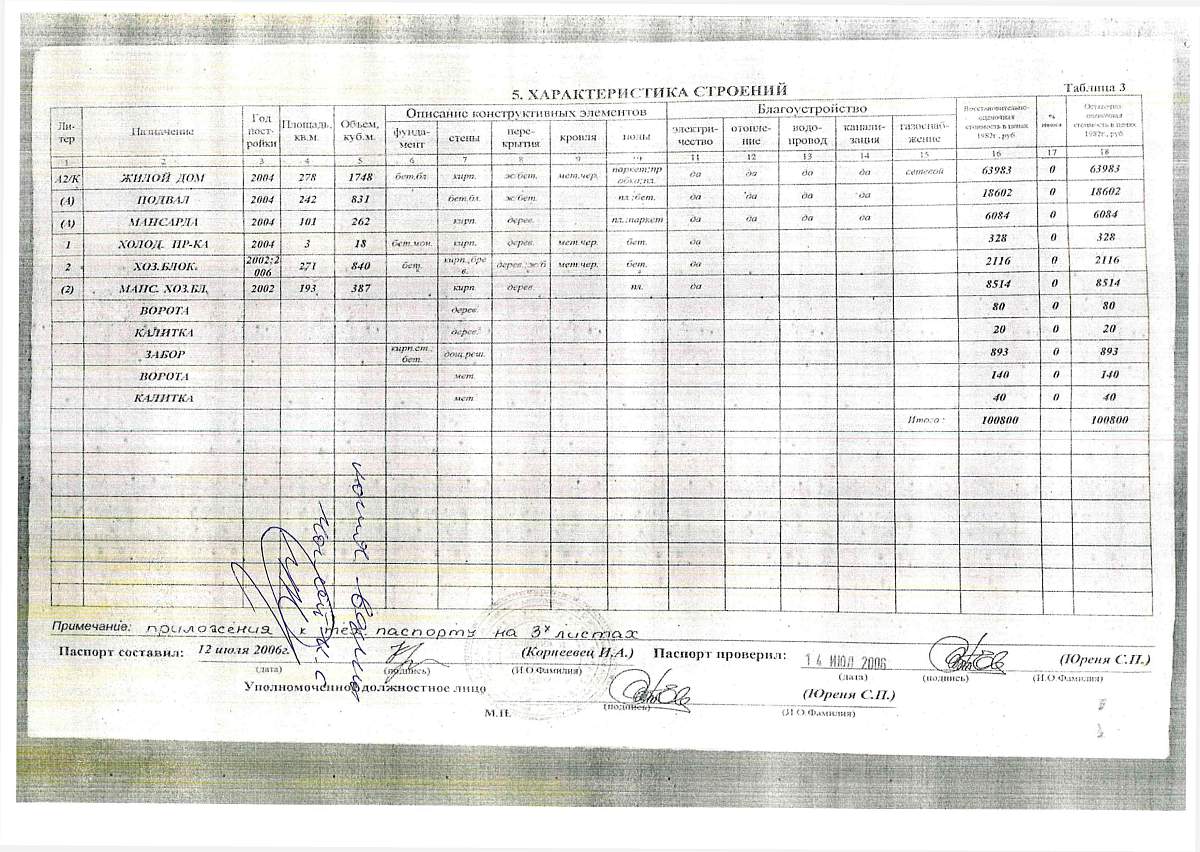 5. ХАРАКТЕРИСТИКА СТРОЕНИЙ
Таблица 3
Ли-тер Назначение Год пост-ройки Площадь, кв.м. Объем, куб.м. Описание конструктивных элементов Благоустройство Восстановительно-оценочная стоимость в ценах 1982г., руб % износа Остаточно оценочная стоимость в ценах 1982г., руб
фунда-мент стены пере-крытия кровля полы электри-чество отопле-ние водо-провод канали-зация газоснаб-жение
1 2 3 4 5 6 7 8 9 10 11 12 13 14 15 16 17 18
А2/К ЖИЛОЙ ДОМ 2004 278 1748 бет.бл. кирп. ж/бет. мет.чер. паркет;пробка;пл. да да да да сетевой 63983 0 63983
(А) ПОДВАЛ 2004 242 831 бет.бл. ж/бет. пл.;бет. да да да да 18602 0 18602
(А) МАНСАРДА 2004 101 262 кирп. дерев. пл.;паркет да да да да 6084 0 6084
1 ХОЛОД. ПР-КА 2004 3 18 бет.мон. кирп. дерев. мет.чер. бет. да 328 0 328
2 ХОЗ.БЛОК. 2002;2006 271 840 бет. кирп.,брев. дерев.;ж/б мет.чер. бет. да 2116 0 2116
(2) МАНС. ХОЗ.БЛ. 2002 193 387 кирп. дерев. пл. да 8514 0 8514
ВОРОТА дерев. 80 0 80
КАЛИТКА дерев. 20 0 20
ЗАБОР кирп.ст.; бет. дощ.реш. 893 0 893
ВОРОТА мет. 140 0 140
КАЛИТКА мет. 40 0 40
Итого: 100800 100800
Примечание: приложения к тех. паспорту на 3х листах
Паспорт составил: 12 июля 2006г. (Корнеевец И.А.) Паспорт проверил: 14 ИЮЛ 2006 (Юреня С.П.)
(дата) (подпись) (И.О.Фамилия) (дата) (подпись) (И.О.Фамилия)
Уполномоченное должностное лицо (Юреня С.П.)
М.П. (подпись) (И.О.Фамилия)